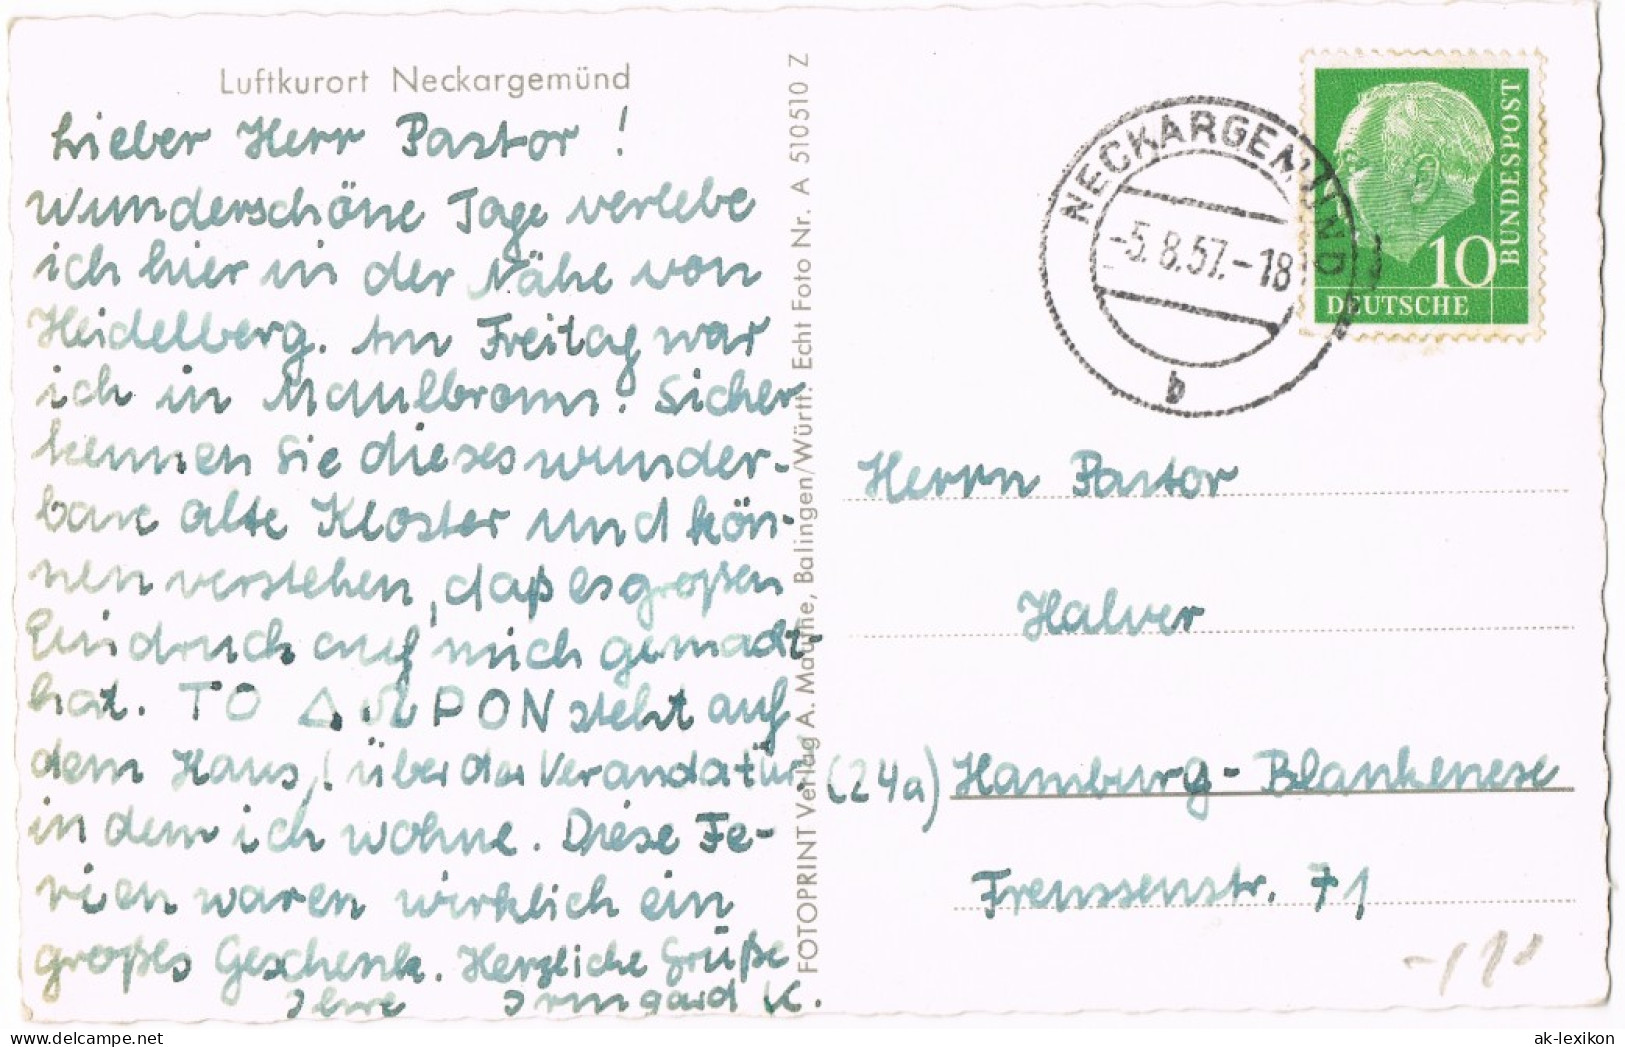 Luftkurort Neckargemünd
Lieber Herr Pastor!
Wunderschöne Tage verlebe
ich hier in der Nähe von
Heidelberg. Am Freitag war
ich in Maulbronn. Sicher
kennen Sie dieses wunder-
bare alte Kloster und kön-
nen verstehen, daß es großen
Eindruck auf mich gemacht
hat. ΤΟ ΔΩΡΟΝ steht auf
dem Haus, über der Verandatür
in dem ich wohne. Diese Fe-
rien waren wirklich ein
großes Geschenk. Herzliche Grüße
Ihre Irmgard K.
FOTOPRINT Verlag A. Mauthe, Balingen/Württ. Echt Foto Nr. A 510510 Z
NECKARGEMÜND
-5.8.57.-18
b
10
DEUTSCHE
BUNDESPOST
Herrn Pastor
Halver
(24a) Hamburg-Blankenese
Frenssenstr. 71
ak-lexikon